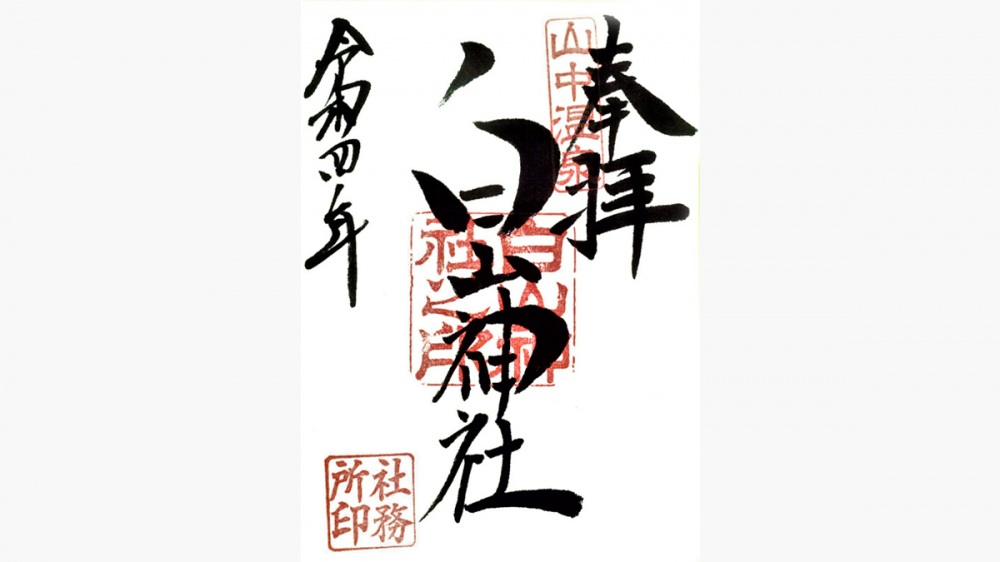 奉拝
山中温泉
白山神社
白山神社之印
令和四年
社務所印